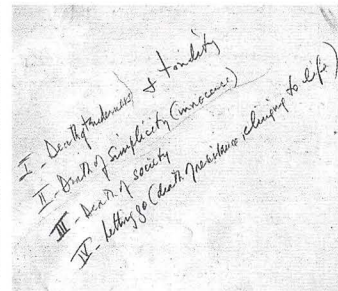 I - Death of tenderness & tonality
II - Death of simplicity (innocence)
III - Death of society
IV - Letting go (death of resistance, clinging to life)